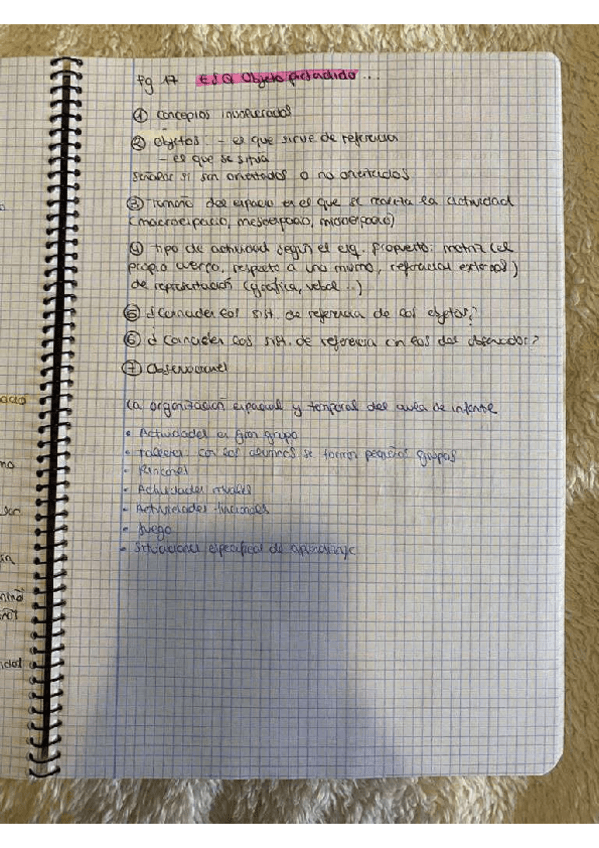 Pg 17 ESQ Objeto escondido...
① Conceptos involucrados
② Objetos: - el que sirve de referencia
- el que se sitúa
Señalar si son orientados o no orientados
③ Tamaño del espacio en el que se realiza la actividad
(macroespacio, mesoespacio, microespacio)
④ Tipo de actividad según el esq. propuesto: motriz (el
propio cuerpo, respecto a uno mismo, referencias externas)
de representación (gráfica, verbal ..)
⑤ ¿Coinciden los sist. de referencia de los objetos?
⑥ ¿Coinciden los sist. de referencia con los del observador?
⑦ Observaciones
La organización espacial y temporal del aula de infantil
• Actividades en gran grupo
• Talleres: con los alumnos se forman pequeños grupos
• Rincones
• Actividades
• Actividades funcionales
• Juego
• Situaciones específicas de aprendizaje